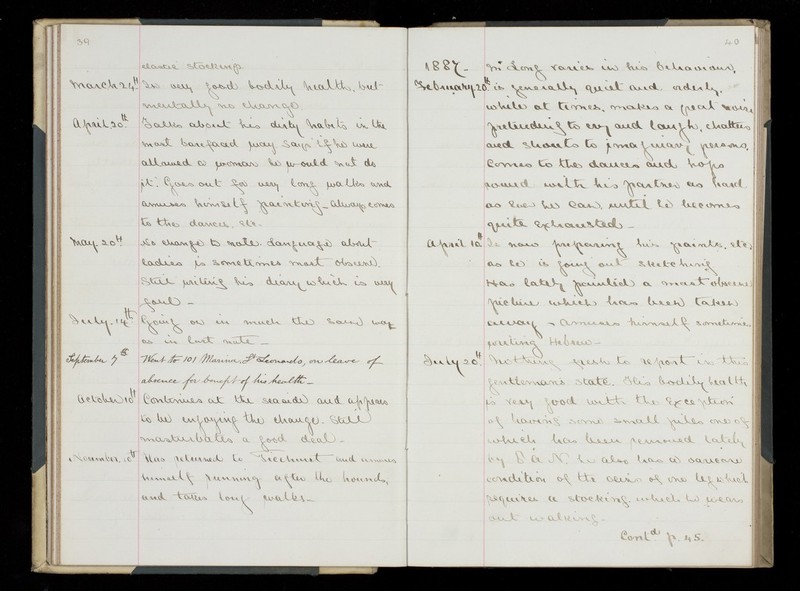 39
elastic stocking.
March 24th Is in very good bodily health, but
mentally no change.
April 20th Talks about his dirty habits in the
most barefaced way says if he were
allowed a woman he would not do
it. Goes out for very long walks and
amuses himself painting - always comes
to the dances, etc.
May 20th No change to note. Language about
ladies is sometimes most obscene.
Still writing his diary which is very
foul -
July 14th Going on in much the same way
as in last note -
September 7th Went to 101 Marina, St Leonards, on leave of
absence for benefit of his health -
October 10th Continues at the seaside and appears
to be enjoying the change. Still
masturbates a good deal -
November 10th Has returned to Ticehurst and amuses
himself running after the hounds,
and takes long walks -
40
1887 - Mr Long varies in his behaviour,
February 20th is generally quiet and orderly,
while at times, makes a great noise
pretending to cry and laugh, chatters
and shouts to imaginary persons.
Comes to the dances and hops
round with his partner as hard
as ever he can, until he becomes
quite exhausted -
April 10th Is now preparing his paints, etc,
as he is going out sketching
Has lately painted a most obscene
picture which has been taken
away - Amuses himself sometimes
writing Hebrew -
July 20th Nothing fresh to report in this
gentleman's state. His bodily health
is very good with the exception
of having some small piles one of
which has been removed lately
by he also has a varicose
condition of the veins of one leg which
requires a stocking which he wears
out walking -
Contd p. 45.